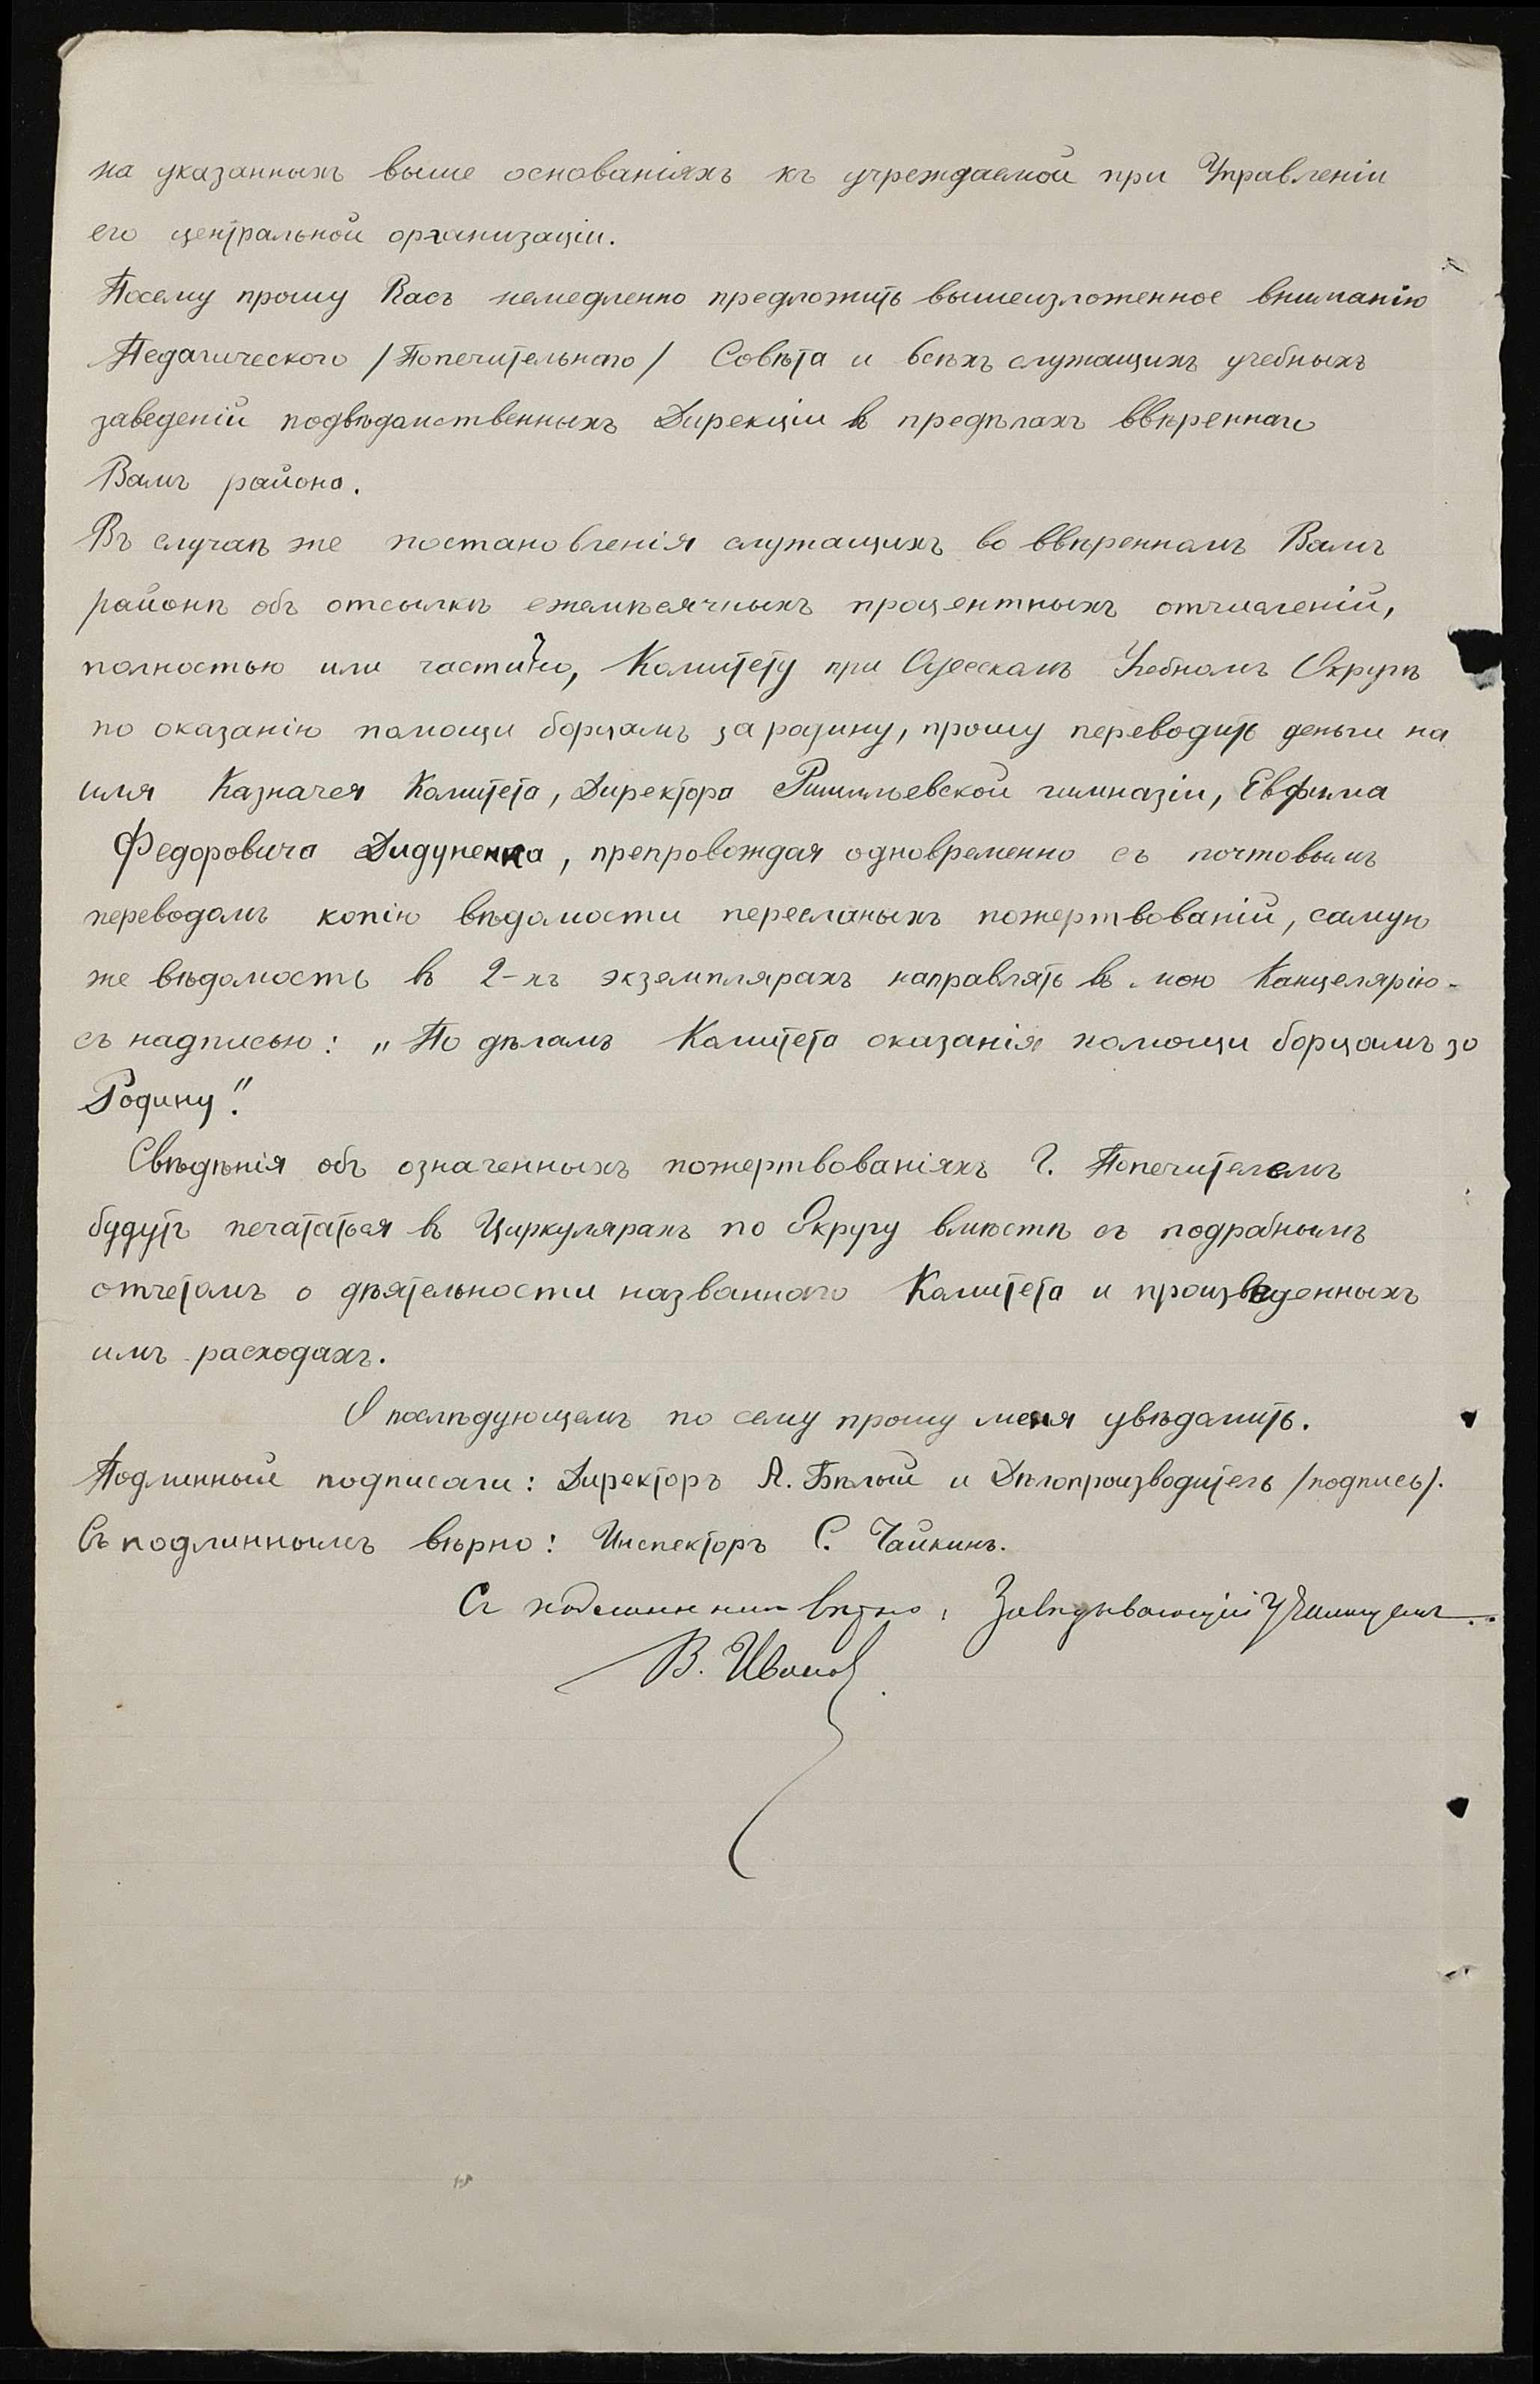 на указанныхъ выше основаніяхъ къ учреждаемой при Управленіи
его центральной организаціи.
Посему прошу Васъ немедленно предложить вышеизложенное вниманію
Педагическаго /Попечительнаго/ Совѣта и всѣхъ служащихъ учебныхъ
заведеній подвѣдомственныхъ Дирекціи въ предѣлахъ ввѣреннаго
Вамъ района.
Въ случаѣ же постановленія служащихъ во ввѣренномъ Вамъ
районѣ объ отсылкѣ ежемѣсячныхъ процентныхъ отчисленій,
полностью или частично, Комитету при Одесскомъ Учебномъ Округѣ
по оказанію помощи борцамъ за родину, прошу переводить деньги на
имя Казначея Комитета, Директора Ришильевской гимназіи, Евфима
Федоровича Дидуненка, препровождая одновременно съ почтовымъ
переводомъ копію вѣдомости пересланыхъ пожертвованій, самую
же вѣдомость въ 2-хъ экземплярахъ направлять въ мою Канцелярію-
съ надписью: „По дѣламъ Комитета оказанія помощи борцамъ за
Родину".
Свѣдѣнія объ означенныхъ пожертвованіяхъ Г. Попечителемъ
будутъ печататься въ Циркулярахъ по Округу вмѣстѣ съ подробнымъ
отчетомъ о дѣятельности названнаго Комитета и произведенныхъ
имъ расходахъ.
О послѣдующемъ по сему прошу меня увѣдомить.
Подлинный подписали: Директоръ А. Бѣлый и Дѣлопроизводитель /подпись/.
Съ подлиннымъ вѣрно: Инспекторъ С. Чайкинъ.
Съ подлиннымъ вѣрно: Завѣдывающій Училищемъ
В. Ивановъ